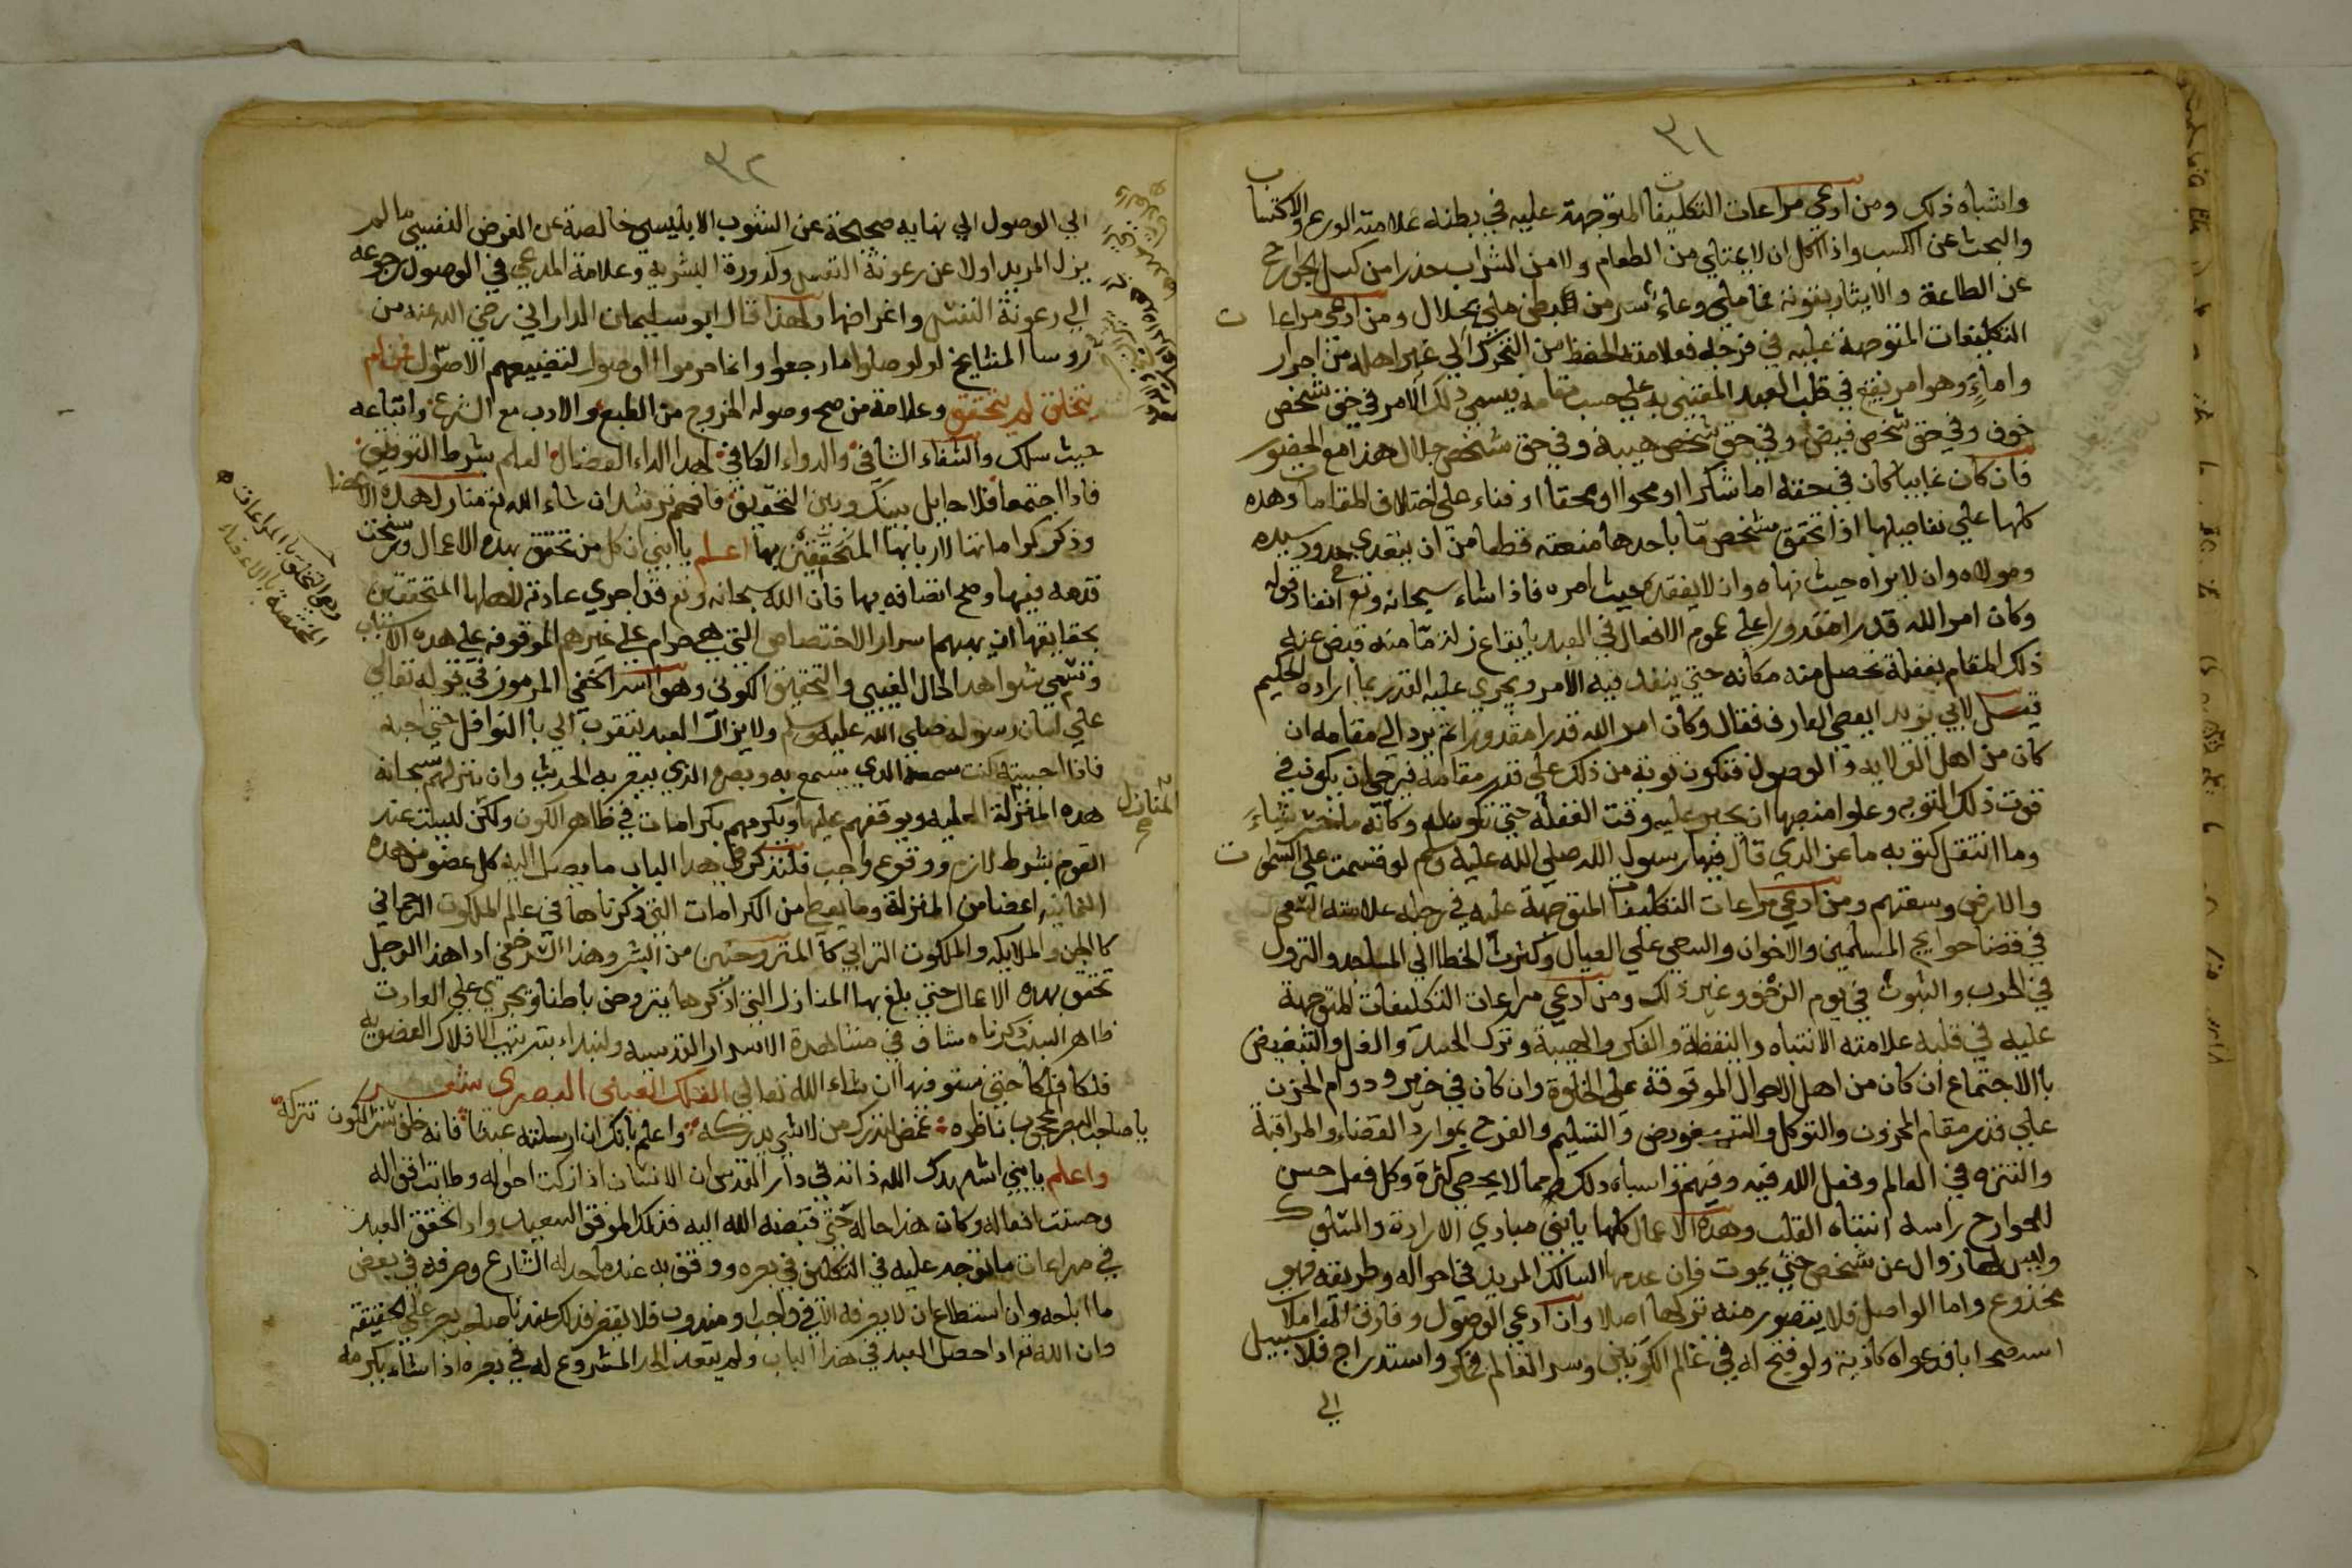 ٣١
واشباه ذلك ومن ادعي مراعات التكليفات المتوجهة عليه في بطنه علامته الورع والاكتساب
والبحث عن الكسب واذا اكل ان لا يمتلي من الطعام ولا من الشراب حذرا من كسل الجوارح
عن الطاعة والايثار بقوته فما ملي وعاء شر من بطن ملي بحلال ومن ادعي مراعات
التكليفات المتوجهة عليه في فرجه فعلامته الحفظ من التحرك الي غير اهله من احرار
واماء وهو امر يقع في قلب العبد المعتني به علي حسب مقامه فيسمي ذلك الامر في حق شخص
خوف وفي حق شخص قبض وفي حق شخص هيبة وفي حق شخص جلال هذا مع الحضور
فان كان غايبا كان في حقه اما شكرا او محوا او محقا او فناء علي اختلاف المقامات وهذه
كلها علي تفاصيلها اذا تحقق شخص ما باحدها منعته قطعا من ان يتعدي حدود سيده
ومولاه وان لا يراه حيث نهاه وان لا يفقده حيث امره فاذا شاء سبحانه وتع انفاذ قوله
وكان امر الله قدرا مقدورا علي عموم الافعال في العبد بايقاع زلة ما منه قبض عنه
ذلك المقام بغفلة تحصل منه مكانه حتي ينفد فيه الامر ويجري عليه القدر بما اراده الحكيم
قيل لابي يزيد ايعصي العارف فقال وكان امر الله قدرا مقدورا ثم يرد الي مقامه ان
كان من اهل الولايه والوصول فتكون توبة من ذلك علي قدر مقامه فيرجي ان يكون في
قوت ذلك التوب وعلو منصبها ان يجبر عليه وقت الغفلة حتي تكون له وكانه ما خسر شياء
وما انتقل كتوبه ماعز الذي قال فيها رسول الله صلي الله عليه وسلم لو قسمت علي السموات
والارض وسعتهم ومن ادعي مراعات التكليفات المتوجهة عليه في رجله علامته السعي
في قضا حوايج المسلمين والاخوان والسعي علي العيال وكثرت الخطا الي المساجد والنزول
في الحرب والثبوت في يوم الزحف وغير ذلك ومن ادعي مراعات التكليفات المتوجهة
عليه في قلبه علامته الانتباه واليقظة والفكر والهيبة وترك الحسد والغل والتبغيض
باالاجتماع ان كان من اهل الاحوال الموقوفة علي الخلوة وان كان في خير ودوام الحزن
علي قدر مقام المحزون والتوكل والتفويض والتسليم والفرح بموارد القضاء والمراقبة
والتنزه في العالم وفعل الله فيه وفيهم واسباه ذلك مما لا يحصي كثرة وكل فعل حسن
للجوارح راسه انتباه القلب وهذه الاعمال كلها يابني مبادي الارادة والسلوك
وليس لها زوال عن شخص حتي يموت فان عدمها السالك المريد في احواله وطريقه فهو
مخدوع واما الواصل فلا يتصور منه تركها اصلا وان ادعي الوصول وفارق المعاملات
فدعواه كاذبة ولو فتح له في عالم الكونين وسر العالم فمكر واستدراج فلا سبيل
الي
٣٢
الي الوصول الي نهايه صحيحة عن الشوب الابليسي خالصة عن الغرض النفسي ما لم
يزل المريد اولا عن رعونة النفس وكدورة البشرية وعلامة المدعي في الوصول رجوعه
الي رعونة النفس واغراضها ولهذا قال ابو سليمان الداراني رضي الله عنه من
روسا المشايخ لو وصلوا ما رجعوا وانما حرموا الوصول لتضييعهم الاصول فمن لم
يتخلق لم يتحقق وعلامة من صح وصوله الخروج من الطبع والادب مع الشرع واتباعه
حيث سلك والشفاء الشافي والدواء الكافي لهذا الداء العضال العلم بشرط التوفيق
فاذا اجتمعا فلا حايل بينك وبين التحقيق فافهم ترشد ان شاء الله تع منازل هذه الاعضا
وذكر كراماتها لاربابها المتحققين بها اعلم يا ابني ان كل من تحقق بهذه الاعمال ورسخت
قدمه فيها وصح اتصافه بها فان الله سبحانه وتع قد اجري عادته لاهلها المتحققين
بحقايقها ان يهبهم اسرار الاختصاص التي هي حرام علي غيرهم الموقوفه علي هذه الاسباب
وتسمي شواهد الحال الغيبي والتحقيق الكوني وهو السر الخفي المرموز في قوله تعالي
علي لسان رسوله صلي الله عليه وسلم ولا يزال العبد يتقرب الي باالنوافل حتي احبه
فاذا احببته كنت سمعه الذي يسمع به وبصره الذي يبصر به الحديث وان ينزلهم سبحانه
هذه المنزلة العليه ويوقفهم عليها ويكرمهم بكرامات في ظاهر الكون ولكن ليست عند
القوم بشرط لازم ووقوع واجب فلنذكر في هذا الباب ما يصل اليه كل عضو من هذه
الثمانية اعضا من المنزلة وما يعطي من الكرامات التي ذكرناها في عالم الملكوت الرحماني
كاالجن والملايكه والملكوت الترابي كا المتروحنين من البشر وهذا السر خفي اذا هذا الرجل
تحقق بهذه الاعمال حتي بلغ بها المنازل التي اذكرها يتروحن باطنا وتجري علي العادت
فلكا فلكا حتي نستوفيها ان شاء الله تعالي الفلك العيني البصري شعر
يا صاحب البصر المحجوب ناظره غمض لتدرك من لا شي يدركه واعلم بانك ان ارسلته عبثا فانه خلف ستر الكون تتركه
واعلم يابني اشهدك الله ذاته في دار القدس ان الانسان اذا زكت احواله وطابت اقواله
وحسنت افعاله وكان هذا حاله حتي قبضه الله اليه فذلك الموفق السعيد واذا تحقق العبد
في مراعات ما توجه عليه في التكليف في بصره ووقف به عند ما حد له الشارع وصرفه في بعض
ما ابلحه وان استطاع ان لا يصرفه الا في واجب او مندوب فلا يقصر فذلك عندنا صاحب بصر علي الحقيقة
وان الله تع اذا حصل العبد في هذا الباب ولم يتعد الحد المشروع له في بصره اذا شاء يكرمه
المنازل
وهو التخلق باالمراعات
المختصة باالاعضاء